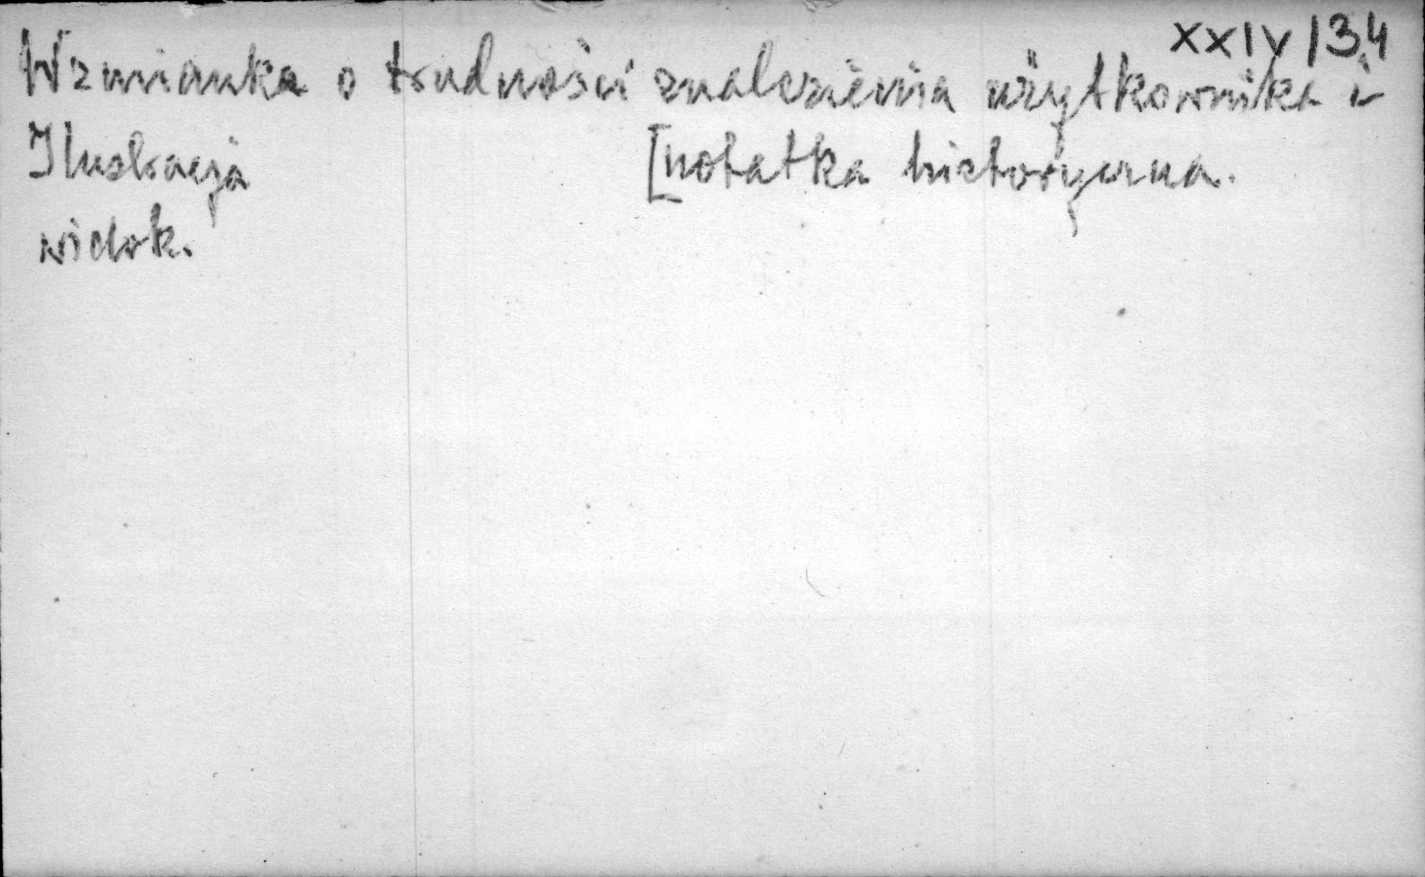 XXIV/34
Wzmianka o trudności znalezienia użytkownika i
Ilustracja [notatka historyczna.
widok.